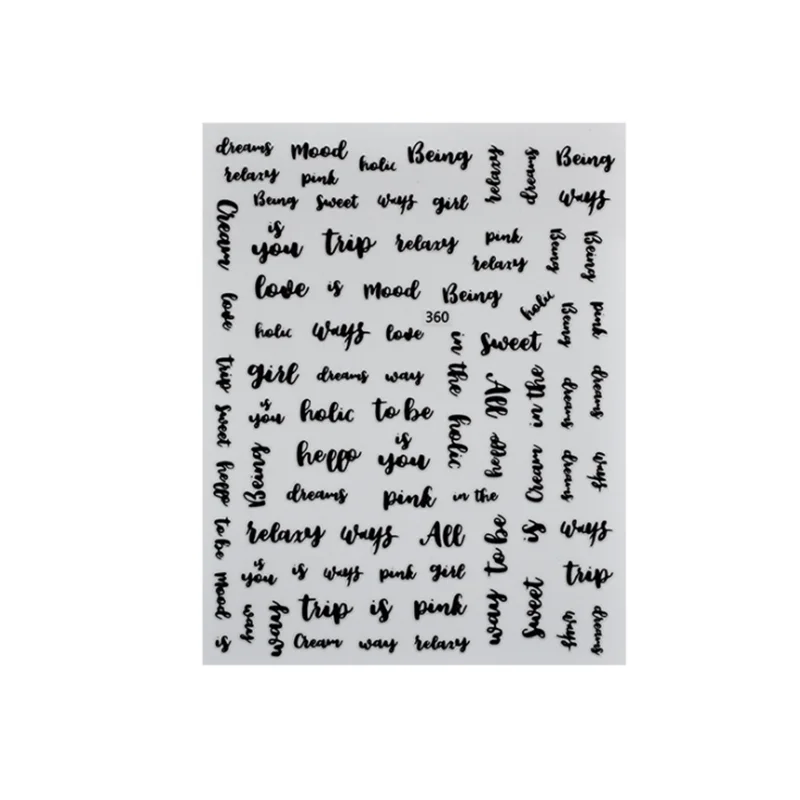 dreams Mood holic Being relaxy dreams Being
relaxy pink
Being sweet ways girl ways
Cream is you trip relaxy pink Being Being
relaxy
love is Mood Being holic
360
love holic ways love in the sweet Being pink
trip girl dreams way All in the dreams dreams
sweet is you holic to be holic
hello Being hello is you hello Cream dreams ways
dreams pink in the
to be relaxy ways All ways to be is ways
Mood is you is ways pink girl sweet trip
way ways trip is pink ways dreams
is Cream way relaxy